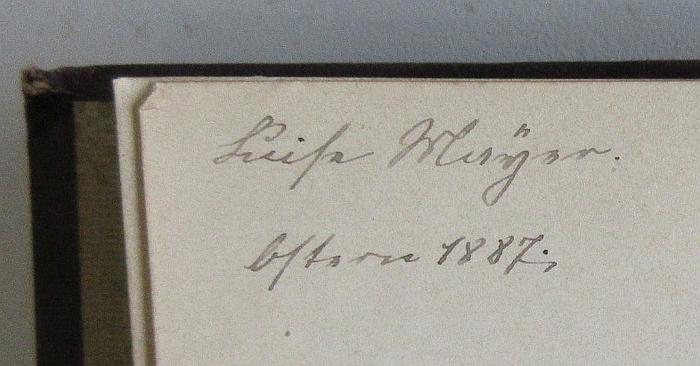 Luise Maÿer.
Ostern 1887.